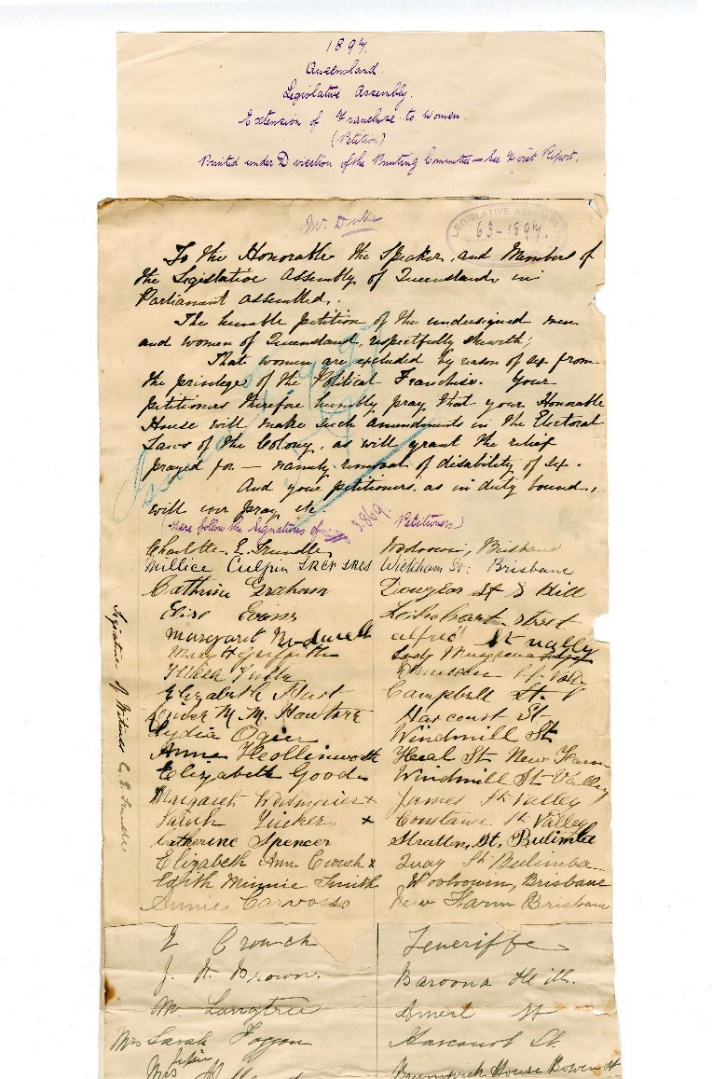 1897.
Queensland.
Legislative Assembly.
Extension of Franchise to Women.
(Petition)
Printed under Direction of the Printing Committee — See First Report.
Mr.
LEGISLATIVE ASSEMBLY
63-1897.
To the Honorable the Speaker, and Members of
the Legislative Assembly of Queensland, in
Parliament assembled.
The humble petition of the undersigned men
and women of Queensland, respectfully sheweth;
That women are excluded by reason of sex from
the privileges of the Political Franchise. Your
petitioners therefore humbly pray, that your Honorable
House will make such amendments in the Electoral
Laws of the Colony, as will grant the relief
prayed for — namely, removal of disability of sex.
And your petitioners, as in duty bound,
will ever pray, etc.
(Here follow the Signatures of 3.869. Petitioners)
Charlotte E. Trundle Woolowin, Brisbane
Millice Culpin Wickham St: Brisbane
Cathrine Graham Douglas St S Hill
Elise Evans street
Margaret Alfred St Vally
Mary H Griffith Lady Musgrave
Elizabeth Campbell St. V
M. M. Harcourt St
Lydia Ogier Windmill St
Annie Hollinworth Heal St New Farm
Elizabeth Goode Windmill St Valley
Margaret x James St Valley
Sarah Tucker x Constance St Valley
Catherine Spencer Stratton, St. Bulimba
Elizabeth Ann Crouch x Quay St Bulimba
Edith Minnie Smith Woolowin, Brisbane
Annie Carvosso New Farm Brisbane
Signature of Witness C. E. Trundle
E Crouch Teneriffe
J. H. Brown Baroona Hill.
M. Langtree St
Mrs Sarah Foggon Harcourt St.
Mrs House Bowen St